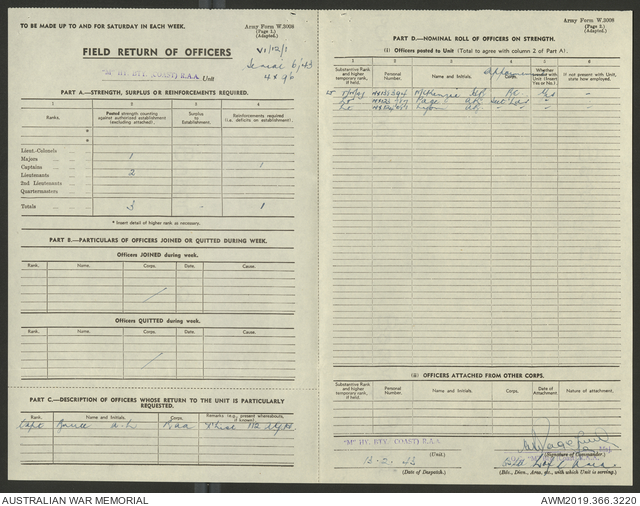 TO BE MADE UP TO AND FOR SATURDAY IN EACH WEEK.
Army Form W.3008
(Page 1.)
(Adapted.)
FIELD RETURN OF OFFICERS
"M" HY. BTY. (COAST) R.A.A. Unit
PART A.—STRENGTH, SURPLUS OR REINFORCEMENTS REQUIRED.
1 2 3 4
Ranks. Posted strength counting against authorized establishment (excluding attached). Surplus to Establishment. Reinforcements required (i.e. deficits on establishment).
*
*
Lieut.-Colonels
Majors 1
Captains 1
Lieutenants 2
2nd Lieutenants
Quartermasters
Totals 3 - 1
* Insert detail of higher rank as necessary.
PART B.—PARTICULARS OF OFFICERS JOINED OR QUITTED DURING WEEK.
Officers JOINED during week.
Rank. Name. Corps. Date. Cause.
Officers QUITTED during week.
Rank. Name. Corps. Date. Cause.
PART C.—DESCRIPTION OF OFFICERS WHOSE RETURN TO THE UNIT IS PARTICULARLY REQUESTED.
Rank. Name and Initials. Corps. Remarks (e.g., present whereabouts, if known).
Capt R.A.A. 112
Army Form W.3008
(Page 2.)
(Adapted.)
PART D.—NOMINAL ROLL OF OFFICERS ON STRENGTH.
(i) Officers posted to Unit (Total to agree with column 2 of Part A).
1 2 3 4 5 6
Substantive Rank and higher temporary rank, if held. Personal Number. Name and Initials. Corps. Whether present with Unit (Insert Yes or No). If not present with Unit, state how employed.
McKenzie
Lt Page
Lt Lyon
(ii) OFFICERS ATTACHED FROM OTHER CORPS.
Substantive Rank and higher temporary rank, if held. Personal Number. Name and Initials. Corps. Date of Attachment. Nature of attachment.
"M" HY. BTY. (COAST) R.A.A. (Unit)
(Signature of Commander.)
13-2-43
(Date of Despatch.) (Bde., Divn., Area, etc., with which Unit is serving.)
AUSTRALIAN WAR MEMORIAL AWM2019.366.3220